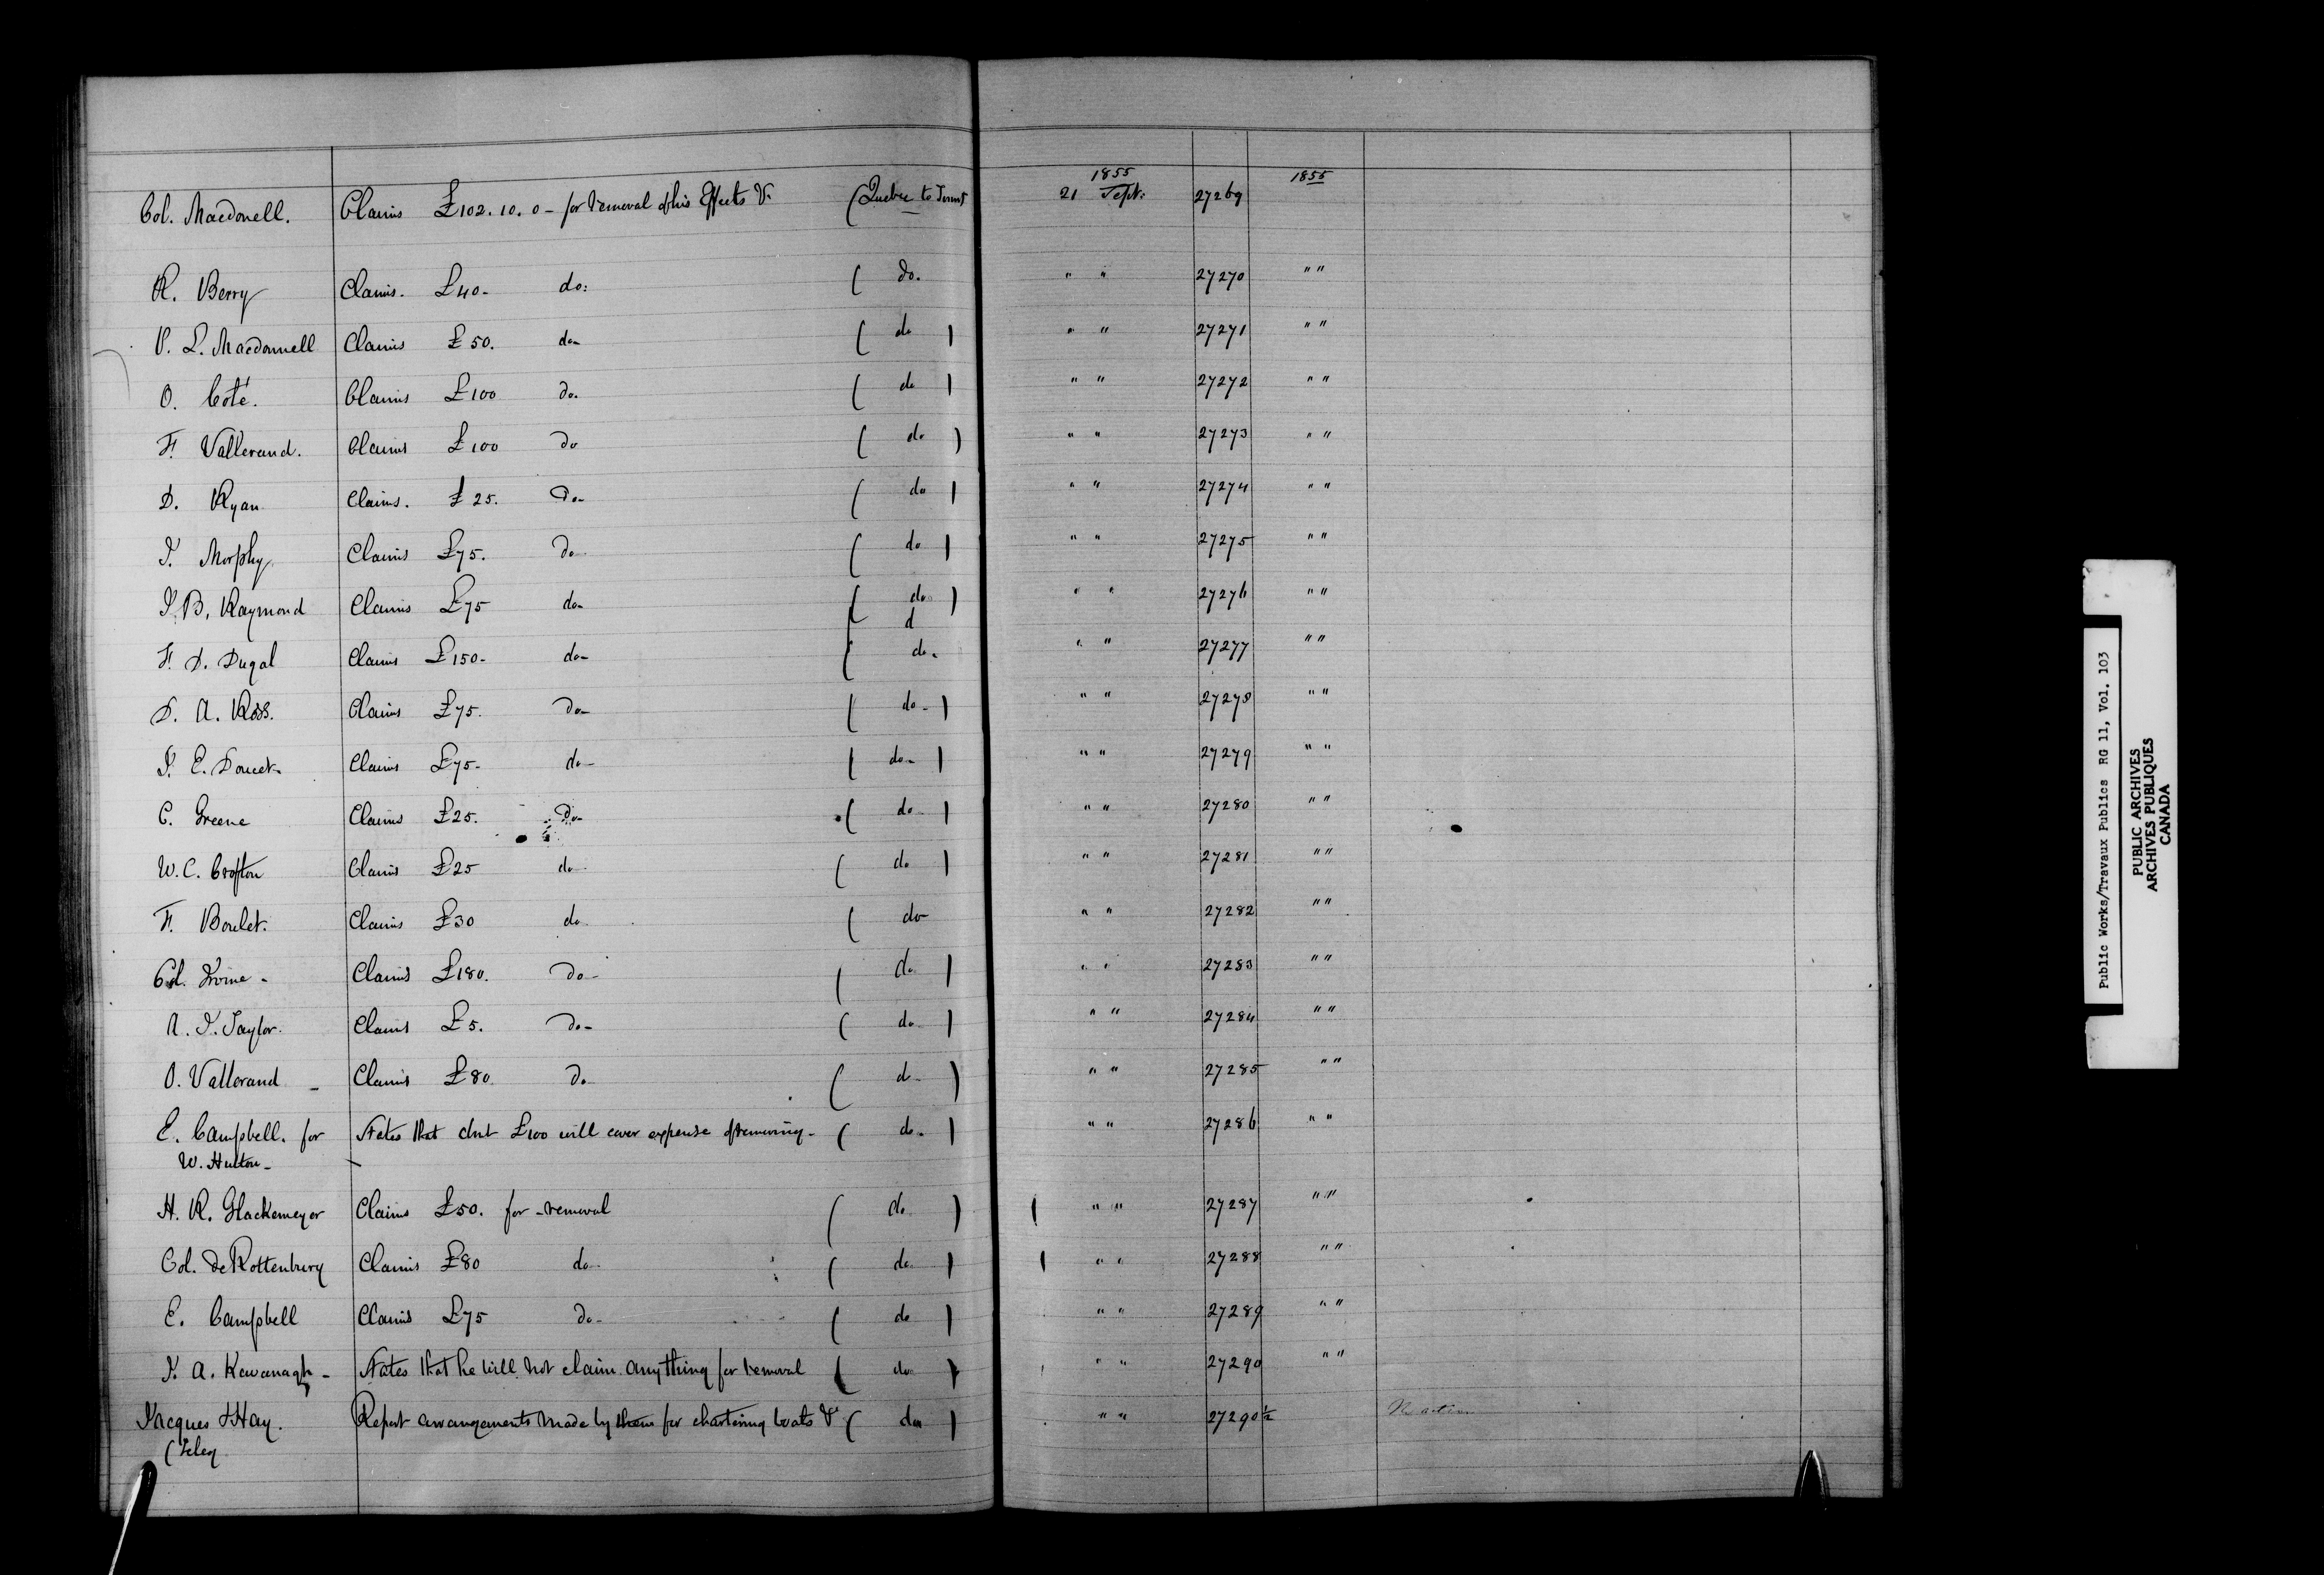 1855 1855
Col. Macdonell. Claims £102. 10. 0 - for removal of his Effects &c (Quebec to Toront 21 Sept: 27269
R. Berry Claims. £40- do: ( do. " " 27270 " "
P. L. Macdonnell Claims £50. do- ( do ) " " 27271 " "
O. Coté. Claims £100 do. ( do ) " " 27272 " "
F. Vallerand. Claims £100 do ( do ) " " 27273 " "
D. Ryan Claims. £25. do- ( do ) " " 27274 " "
J. Morphy Claims £75. do ( do ) " " 27275 " "
J. B. Raymond Claims £75 do- ( do ) " " 27276 " "
d
F. D. Dugal Claims £150- do- ( do. " " 27277 " "
D. A. Ross. Claims £75. do- ( do - ) " " 27278 " "
J. E. Doucet- Claims £75- do- ( do- ) " " 27279 " "
C. Greene Claims £25. do- ( do ) " " 27280 " "
W. C. Crofton Claims £25 do ( do ) " " 27281 " "
F. Boulet. Claims £30 do ( do- " " 27282 " "
Col. Irvine - Claims £180. do- ( do ) " " 27283 " "
A. J. Taylor. Claims £5. do- ( do ) " " 27284 " "
O. Vallerand - Claims £80 do ( do- ) " " 27285 " "
E. Campbell. for States that abt £100 will cover expense of removing- ( do- ) " " 27286 " "
W. Hutton-
H. R. Glackemeyer Claims £50. for removal ( do ) ( " " 27287 " "
Col. de Rottenburg Claims £80 do- ( do ) ( " " 27288 " "
E. Campbell Claims £75 do- ( do ) " " 27289 " "
J. A. Kavanagh - States that he will not claim anything for removal ( do ) " " 27290 " "
Jacques & Hay. Report arrangements made by them for chartering boats &c ( do ) " " 27290½ No action
(Teleg
Public Works/Travaux Publics RG 11, Vol. 103
PUBLIC ARCHIVES
ARCHIVES PUBLIQUES
CANADA